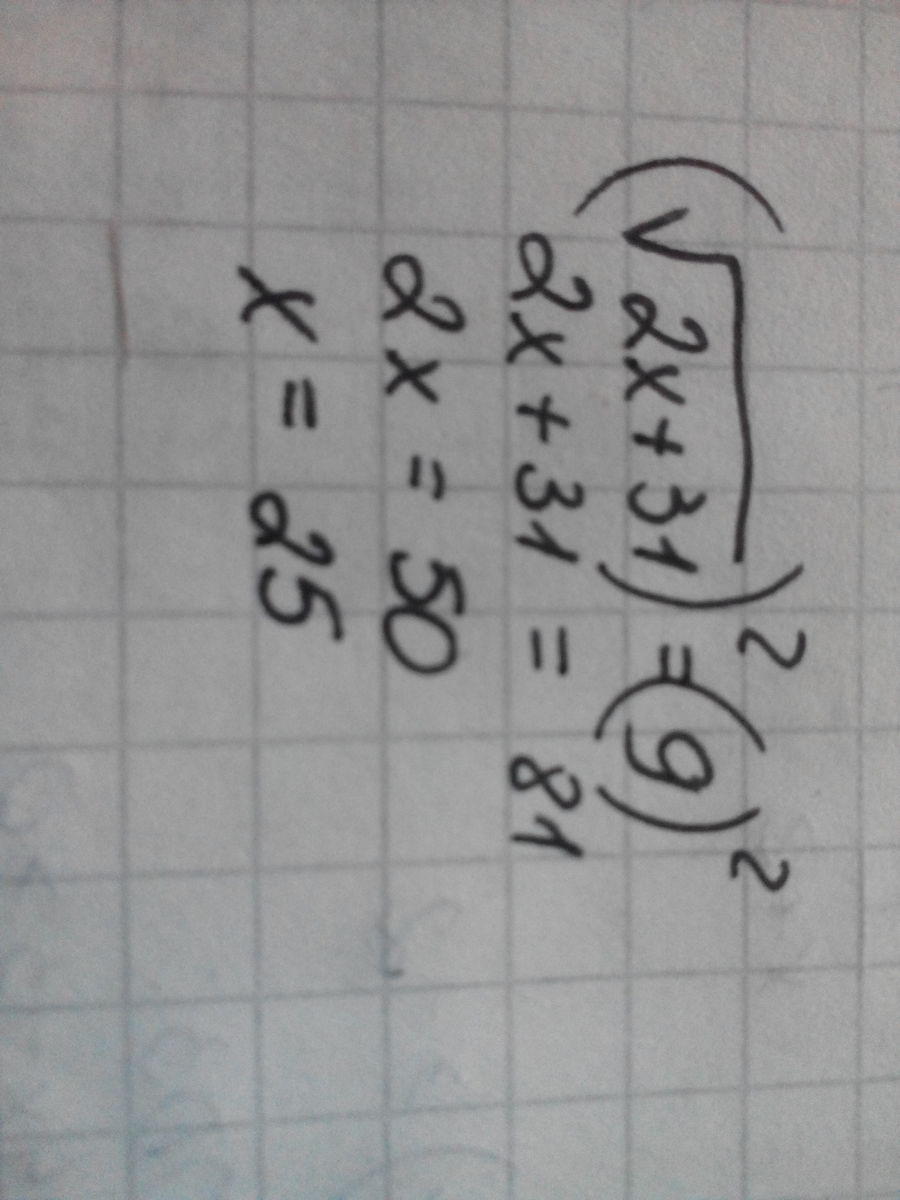 (√2x+31)² = (9)²
2x+31 = 81
2x = 50
x = 25